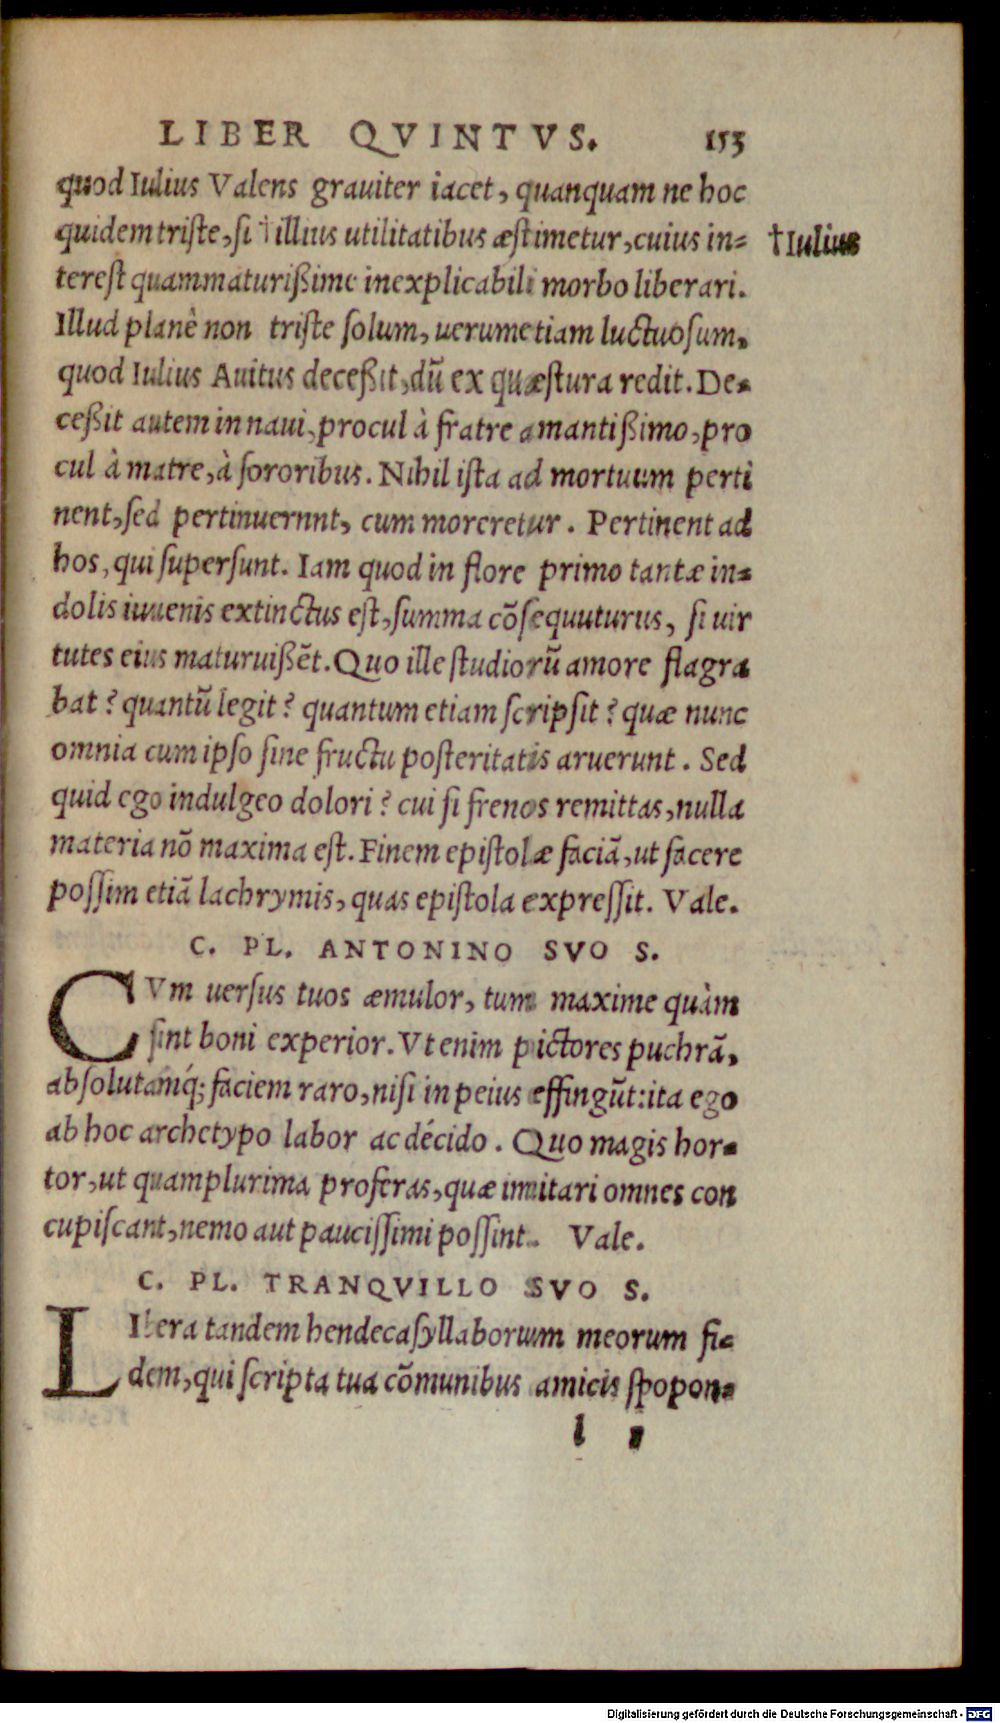 LIBER QVINTVS. 153
quod Iulius Valens grauiter iacet, quanquam ne hoc
quidem triste, si † illius utilitatibus æstimetur, cuius in=
terest quammaturißime inexplicabili morbo liberari.
Illud planè non triste solum, uerumetiam luctuosum,
quod Iulius Auitus deceßit, dũ ex quæstura redit. De=
ceßit autem in naui, procul à fratre amantißimo, pro
cul à matre, à sororibus. Nihil ista ad mortuum perti
nent, sed pertinuernnt, cum moreretur. Pertinent ad
hos, qui supersunt. Iam quod in flore primo tantæ in=
dolis iuuenis extinctus est, summa cõsequuturus, si uir
tutes eius maturuißẽt. Quo ille studiorũ amore flagra
bat? quantũ legit? quantum etiam scripsit? quæ nunc
omnia cum ipso sine fructu posteritatis aruerunt. Sed
quid ego indulgeo dolori? cui si frenos remittas, nulla
materia nõ maxima est. Finem epistolæ faciã, ut facere
possim etiã lachrymis, quas epistola expressit. Vale.
C. PL. ANTONINO SVO S.
CVm uersus tuos æmulor, tum maxime quàm
sint boni experior. Vt enim pictores puchrã,
absolutamq́; faciem raro, nisi in peius effingũt: ita ego
ab hoc archetypo labor ac décido. Quo magis hor=
tor, ut quamplurima proferas, quæ imitari omnes con
cupiscant, nemo aut paucissimi possint. Vale.
C. PL. TRANQVILLO SVO S.
LIbera tandem hendecasyllaborum meorum fi=
dem, qui scripta tua cõmunibus amicis spopon=
l
†Iulius
Digitalisierung gefördert durch die Deutsche Forschungsgemeinschaft - DFG